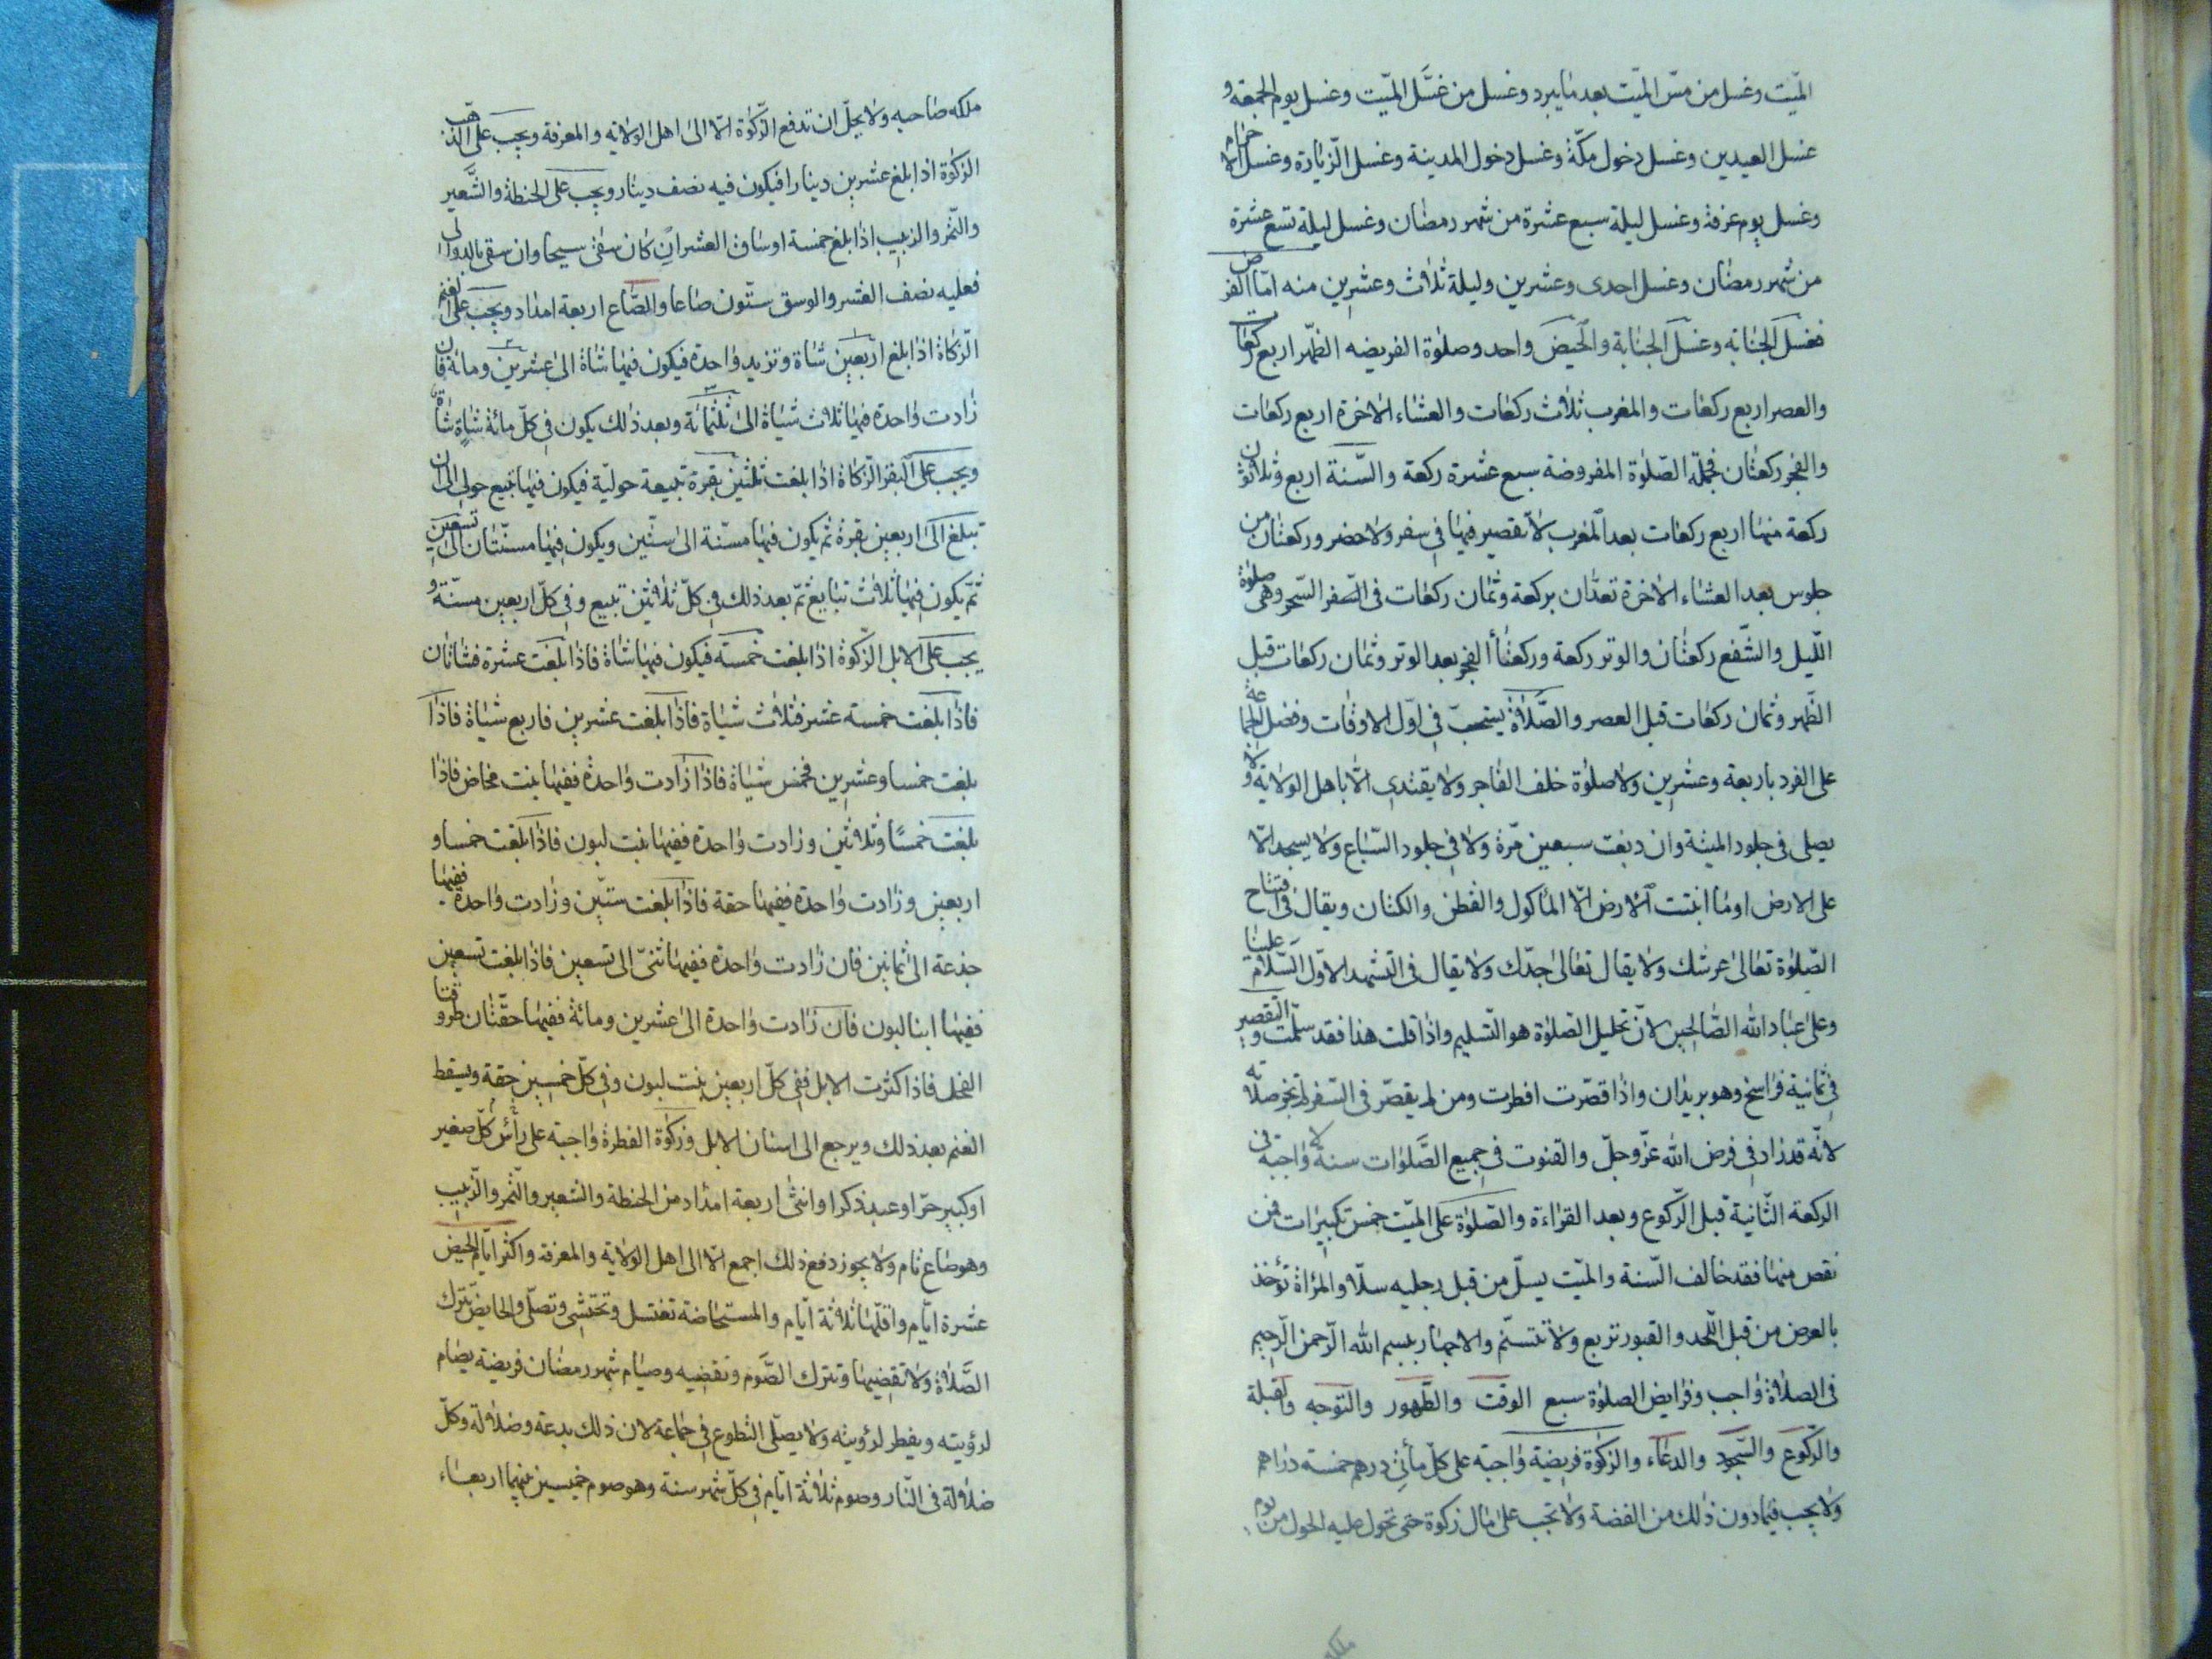 الميّت وغسل من مسّ الميّت بعد ما يبرد وغسل من غسَّل الميّت وغسل يوم الجمعة و
غسل العيدين وغسل دخول مكّة وغسل دخول المدينة وغسل الزّيارة وغسل الاحرام
وغسل يوم عرفة وغسل ليلة سبع عشرة من شهر رمضان وغسل ليلة تسع عشرة
من شهر رمضان وغسل احدى وعشرين وليلة ثلاث وعشرين منه امّا الفرض
فغسل الجنابة وغسل الجنابة والحيض واحد وصلوة الفريضه الظّهر اربع ركعات
والعصر اربع ركعات والمغرب ثلاث ركعات والعشاء الاخرة اربع ركعات
والفجر ركعتان فجملة الصّلوة المفروضة سبع عشرة ركعة والسّنة اربع وثلاثون
ركعة منها اربع ركعات بعد المغرب لا تقصير فيها في سفر ولا حضر وركعتان من
جلوس بعد العشاء الاخرة تعدّان بركعة وثمان ركعات في السّفر السّحر وهي صلوة
اللّيل والشّفع ركعتان والوتر ركعة وركعتا الفجر بعد الوتر وثمان ركعات قبل
الظّهر وثمان ركعات قبل العصر والصَّلاة يستحبّ في اوّل الاوقات وفضل الجماعة
على الفرد باربعة وعشرين ولا صلوة خلف الفاجر ولا يقتدى الّا باهل الولاية ولا
يصلى في جلود الميتة وان دبغت سبعين مرّة ولا في جلود السّباع ولا يسجد الّا
على الارض او ما انبتت الارض الّا المأكول والقطن والكتان ويقال في افتتاح
الصّلوة تعالى عرشك ولا يقال تعالى جدّك ولا يقال في التّشهد الاوّل السّلام علينا
وعلى عباد الله الصّالحين لانّ تحليل الصّلوة هو التّسليم واذا قلت هذا فقد سلّمت والتّقصير
في ثمانية فراسخ وهو بريدان واذا قصّرت افطرت ومن لم يقصّر في السّفر لم تجز صلاته
لانّه قد زاد في فرض الله عزّ وجلّ والقنوت في جميع الصَّلوات سنة لا واجبة في
الركعة الثّانية قبل الرّكوع وبعد القراءة والصّلوة على الميّت خمس تكبيرات فمن
نقص منها فقد خالف السّنة والميّت يسلّ من قبل رجليه سلّا والمرأة تؤخذ
بالعرض من قبل اللّحد والقبور تربع ولا تتسنّم والاجهار ببسم الله الرّحمن الرّحيم
في الصلاة واجب وفرايض الصلوة سبع الوقت والطّهور والتوجه والقبلة
والرّكوع والسّجود والدعاء والزّكوة فريضة واجبة على كلّ مأتي درهم خمسة دراهم
ولا يجب فيما دون ذلك من الفضة ولا تجب على مال زكوة حتى تحول عليه الحول من يوم
ملكه
ملكه صاحبه ولا يحلّ ان تدفع الزّكوة الّا الى اهل الولاية والمعرفة ويجب على الذّهب
الزكوة اذا بلغ عشرين دينارا فيكون فيه نصف دينار ويجب على الحنطة والشّعير
والتّمر والزبيب اذا بلغ خمسة اوساق العشر ان كان سقى سيحا وان سقى بالدوالى
فعليه نصف العشر والوسق ستّون صاعا والصّاع اربعة امداد ويجب على الغنم
الزكاة اذا بلغ اربعين شاة وتزيد واحدة فيكون فيها شاة الى عشرين ومائة فان
زادت واحدة فيها ثلاث شياة الى ثلثمائة وبعد ذلك يكون في كلّ مائة شاة شاة
ويجب على البقر الزّكاة اذا بلغت ثلثين بقرة تبيعة حولية فيكون فيها تبيع حولى الى ان
تبلغ الى اربعين بقرة ثم يكون فيها مسنّة الى ستّين ويكون فيها مسنّتان الى تسعين
ثمّ يكون فيها ثلاث تبايع ثمّ بعد ذلك في كلّ ثلاثين تبيع وفي كلّ اربعين مسنّة و
يجب على الابل الزّكوة اذا بلغت خمسة فيكون فيها شاة فاذا بلغت عشرة فشاتان
فاذا بلغت خمسه عشر فثلاث شياة فاذا بلغت عشرين فاربع شياة فاذا
بلغت خمسا وعشرين فخمس شياة فاذا زادت واحدة ففيها بنت مخاض فاذا
بلغت خمسًا وثلاثين وزادت واحدة ففيها بنت لبون فاذا بلغت خمسا و
اربعين وزادت واحدة ففيها حقة فاذا بلغت ستّين وزادت واحدة ففيها
جذعة الى ثمانين فان زادت واحدة ففيها ثنىّ الى تسعين فاذا بلغت تسعين
ففيها ابنتا لبون فان زادت واحدة الى عشرين ومائة ففيها حقّتان طروقتا
الفحل فاذا كثرت الابل ففي كلّ اربعين بنت لبون وفي كلّ خمسين حقة ويسقط
الغنم بعد ذلك ويرجع الى اسنان الابل وزكوة الفطرة واجبة على رأس كلّ صغير
او كبير حرّ او عبد ذكرا او انثى اربعة امداد من الحنطة والشعير والتّمر والزّبيب
وهو صاع تام ولا يجوز دفع ذلك اجمع الّا الى اهل الولاية والمعرفة واكثر ايّام الحيض
عشرة ايّام واقلّها ثلاثة ايّام والمستحاضة تغتسل وتحتشى وتصلّى والحايض تترك
الصَّلاة ولا تقضيها وتترك الصَّوم وتقضيه وصيام شهر رمضان فريضة يصام
لرؤيته ويفطر لرؤيته ولا يصلّى التطوع في جماعة لان ذلك بدعة وضلالة وكلّ
ضلالة في النّار وصوم ثلاثة ايّام في كلّ شهر سنة وهو صوم خميسين بينهما اربعاء